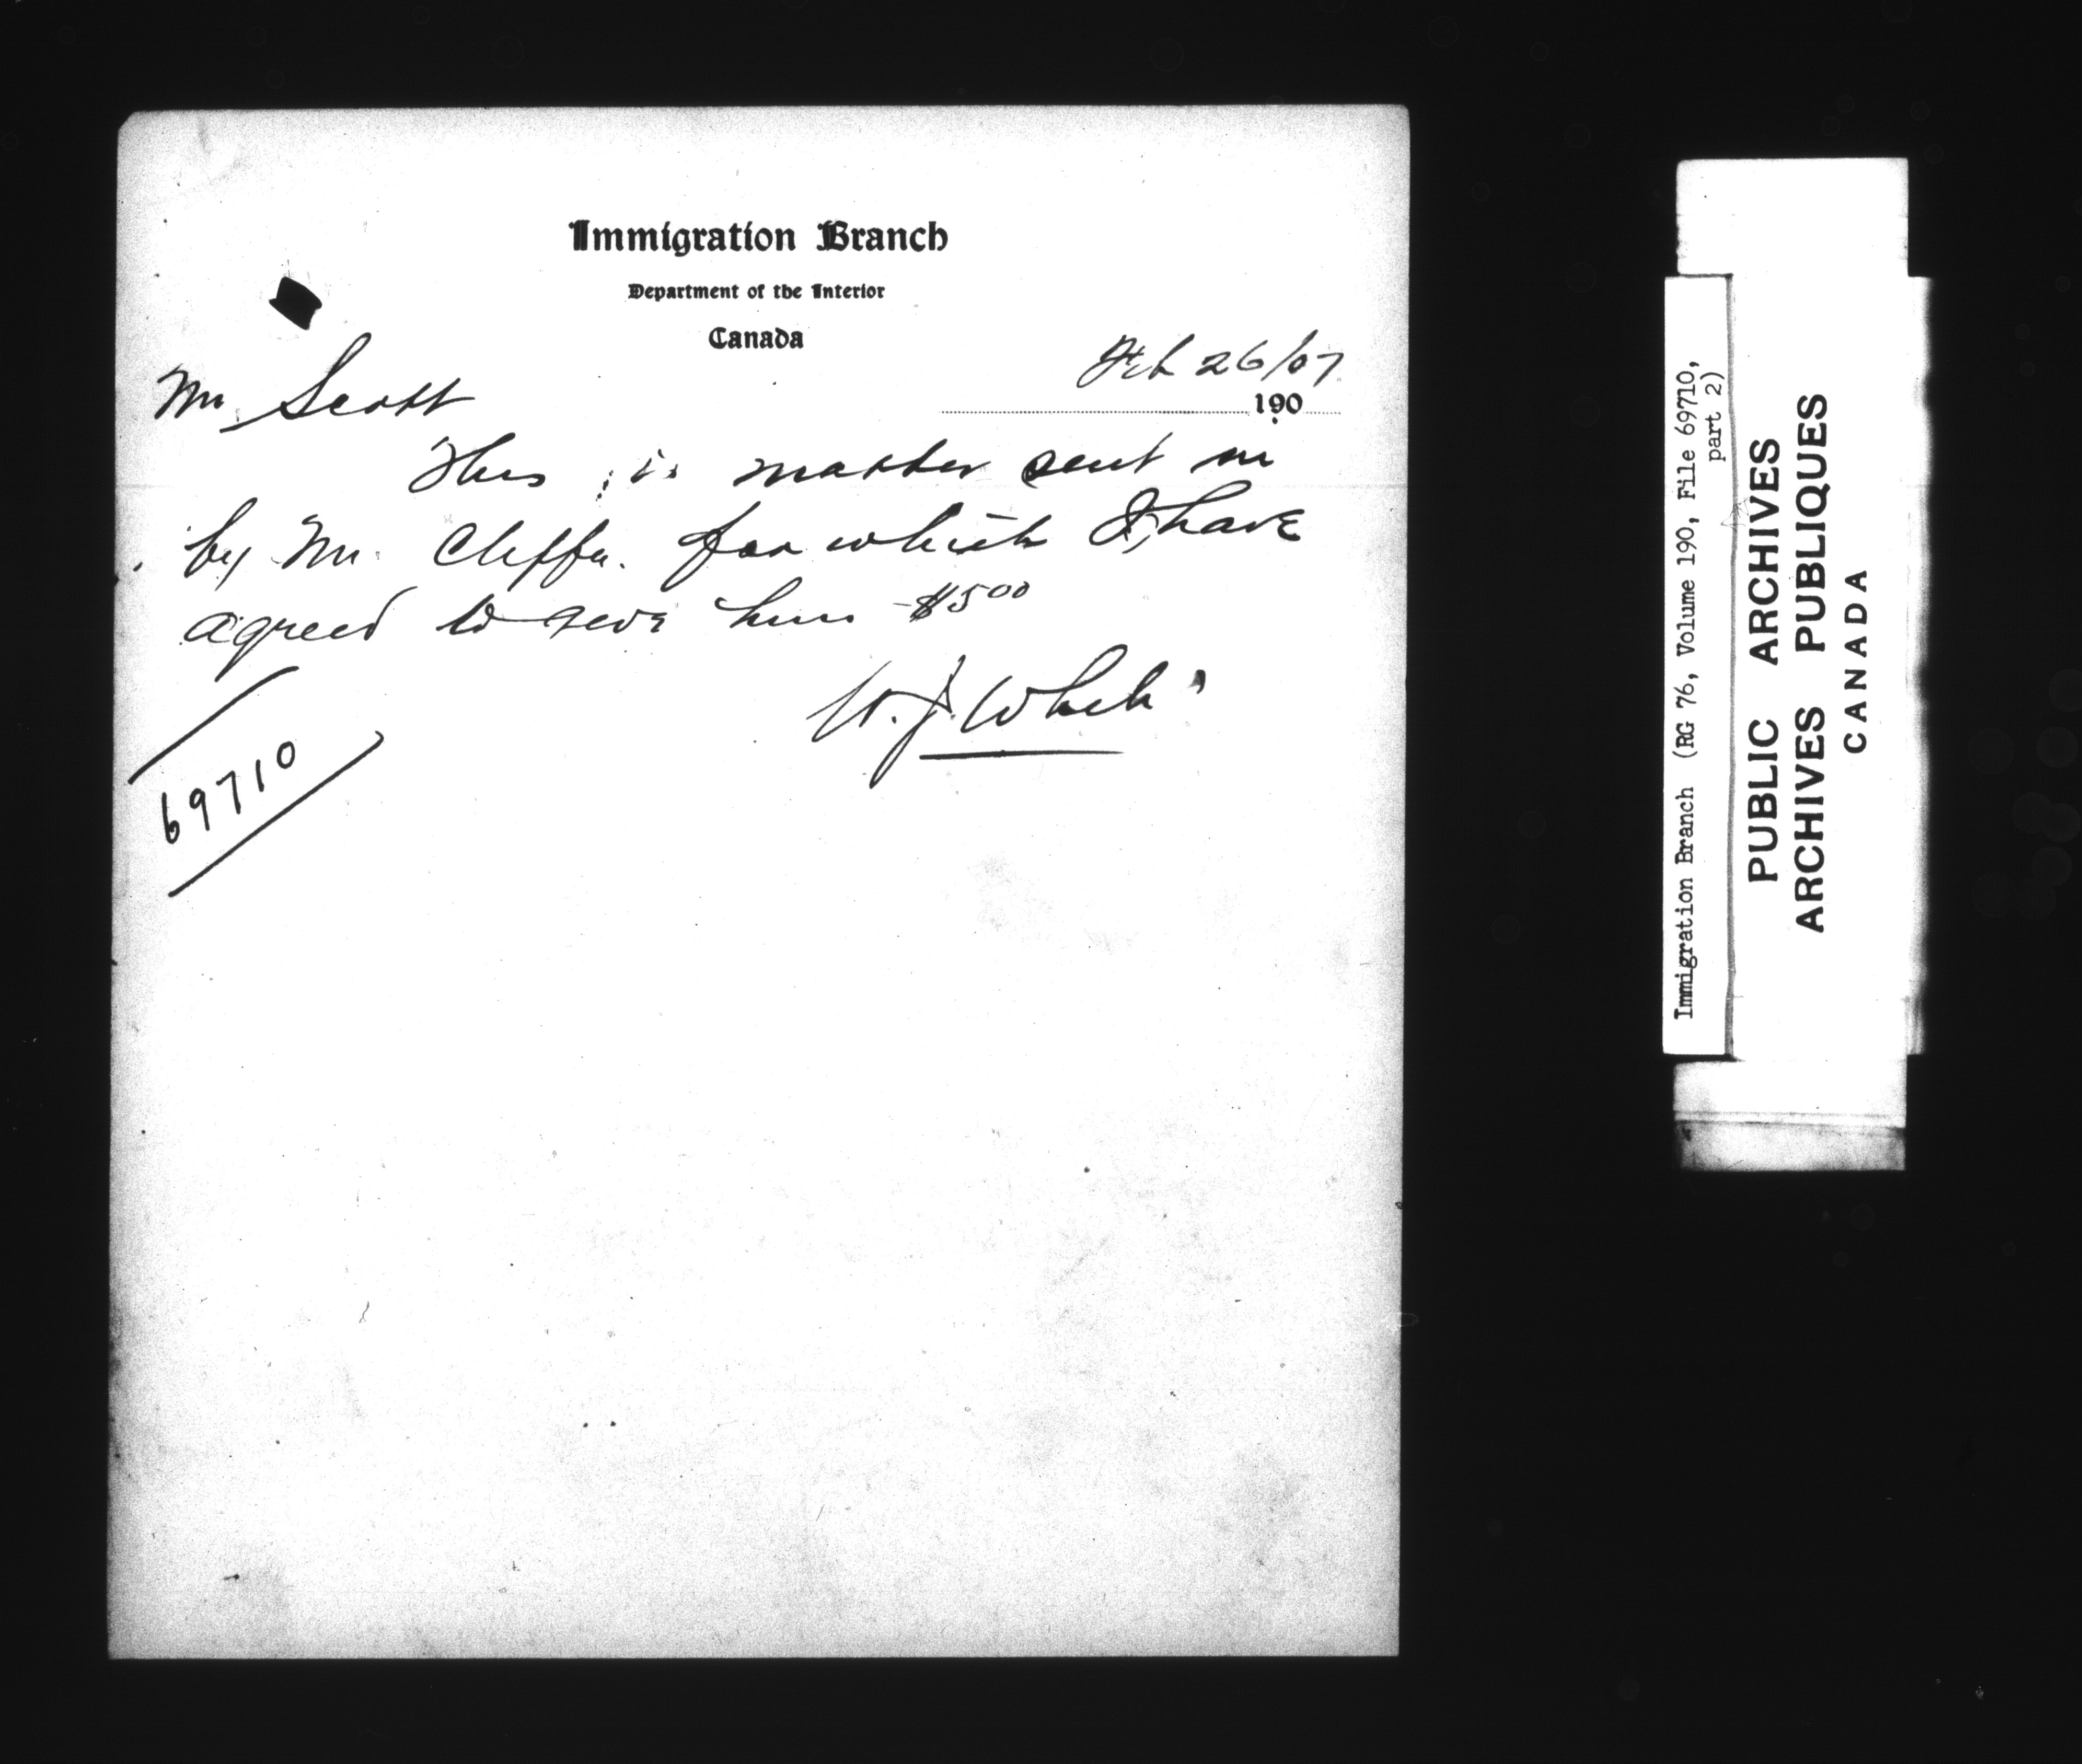 Immigration Branch
Department of the Interior
Canada
Feb 26/07
190
Mr. Scott
This is matter sent in
by Mr. Cliffe. for which I have
agreed to give him $5 00
W. J. White
69710
Immigration Branch (RG 76, Volume 190, File 69710,
part 2)
PUBLIC ARCHIVES
ARCHIVES PUBLIQUES
CANADA